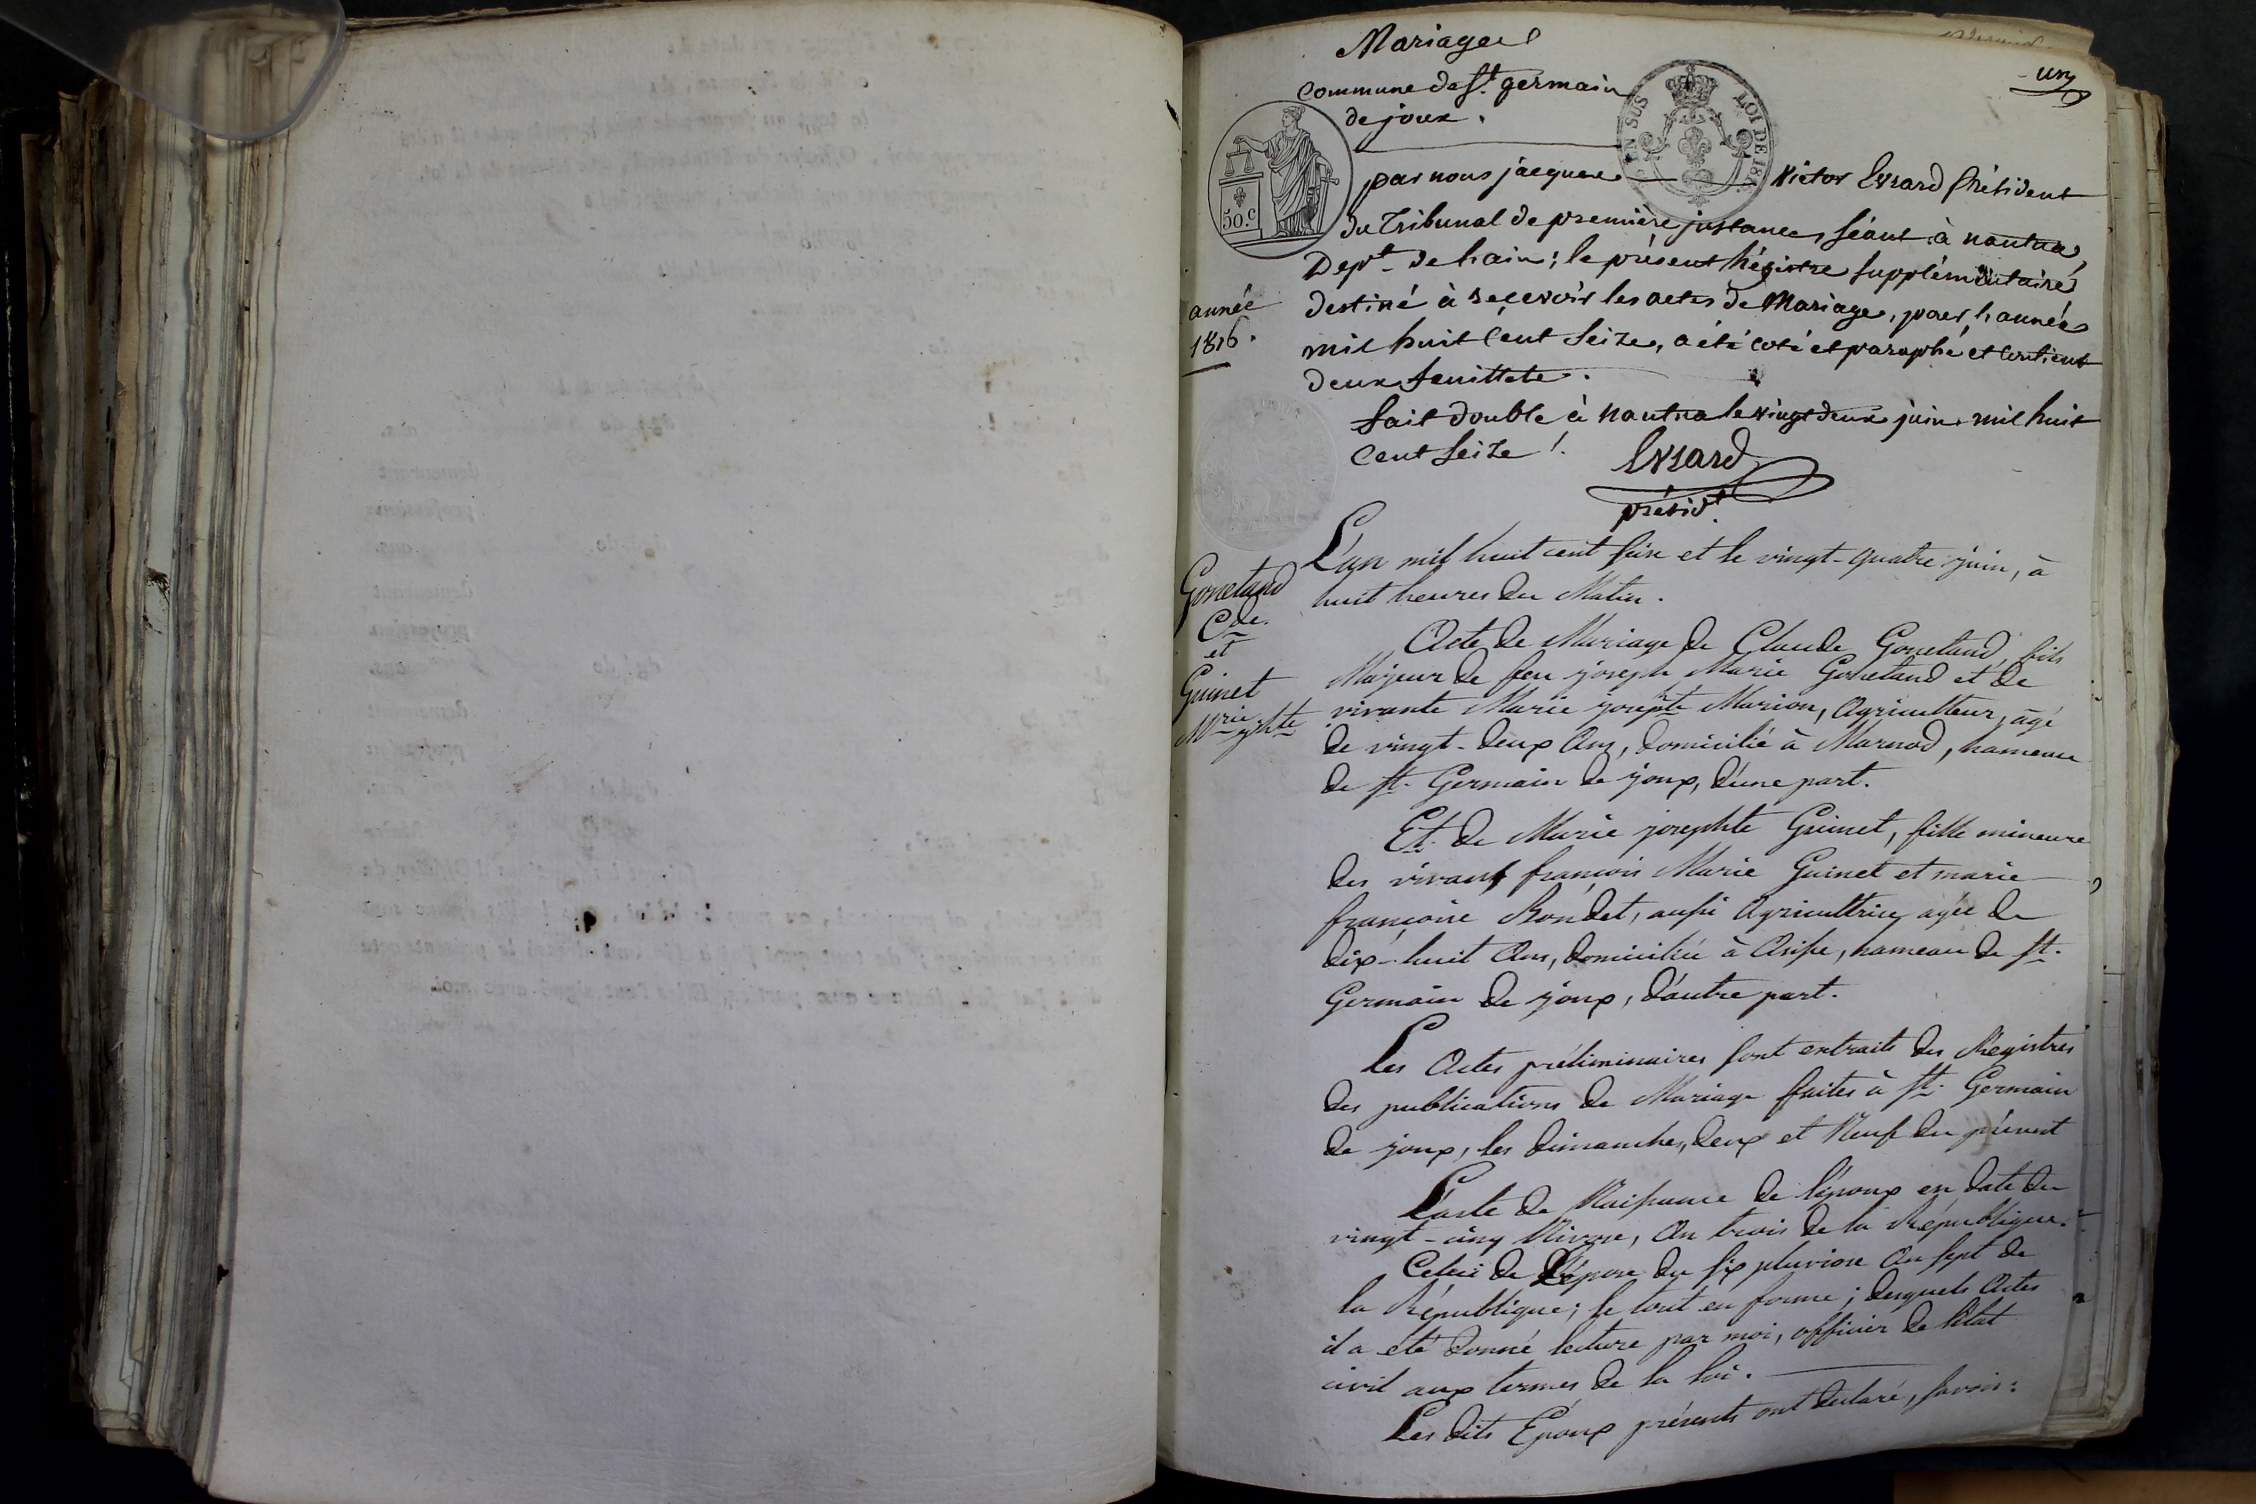 Mariages
un
commune de St. germain
de joux.
EN SUS
LOI DE 181
50.c
par nous jacques Victor Evrard Président
du Tribunal de première instance, séant à nantua,
Dept. de l'ain; le présent Régistre supplémentaire
destiné à recevoir les actes de Mariage, pour l'année
mil huit cent seize, a été coté et paraphé et contient
deux feuillets.
année
1816.
fait double à nantua le vingt deux juin mil huit
cent seize.
Evrard
présidt.
L'an mil huit cent seize et le vingt-quatre juin, à
huit heures du Matin.
Gonetand
Cde.
et
Guinet
Mrie jphte
Acte de Mariage de Claude Gonetand fils
Majeur de feu joseph Marie Gonetand et de
vivante Marie josephte Marion, Agriculteur, âgé
de vingt-deux Ans, domicilié à Marnod, hameau
de St. Germain de joux, d'une part.
Et de Marie josephte Guinet, fille mineure
des vivans françois Marie Guinet et marie
françoise Bondet, aussi Agricultrice, agée de
dix-huit Ans, domiciliée à , hameau de St.
Germain de joux, d'autre part.
Les Actes préliminaires sont extraits des Registres
des publications de Mariage faites à St. Germain
de joux, les dimanches, deux et Neuf du présent
L'acte de Naissance de l'époux en date du
vingt-cinq Nivose, An trois de la République.
Celui de L'épouse du six pluviose An sept de
la République; le tout en forme; desquels Actes
il a été donné lecture par moi, officier de l'état
civil aux termes de la loi.
Les dits Epoux présents ont déclaré, savoir: